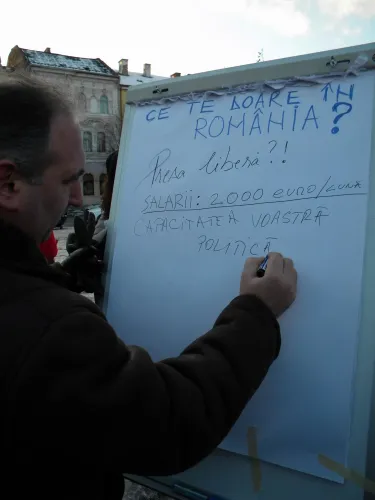 CE TE DOARE ÎN
ROMÂNIA?
Presa liberă?!
SALARII: 2.000 EURO/LUNA
CAPACITATEA VOASTRĂ
POLITICĂ